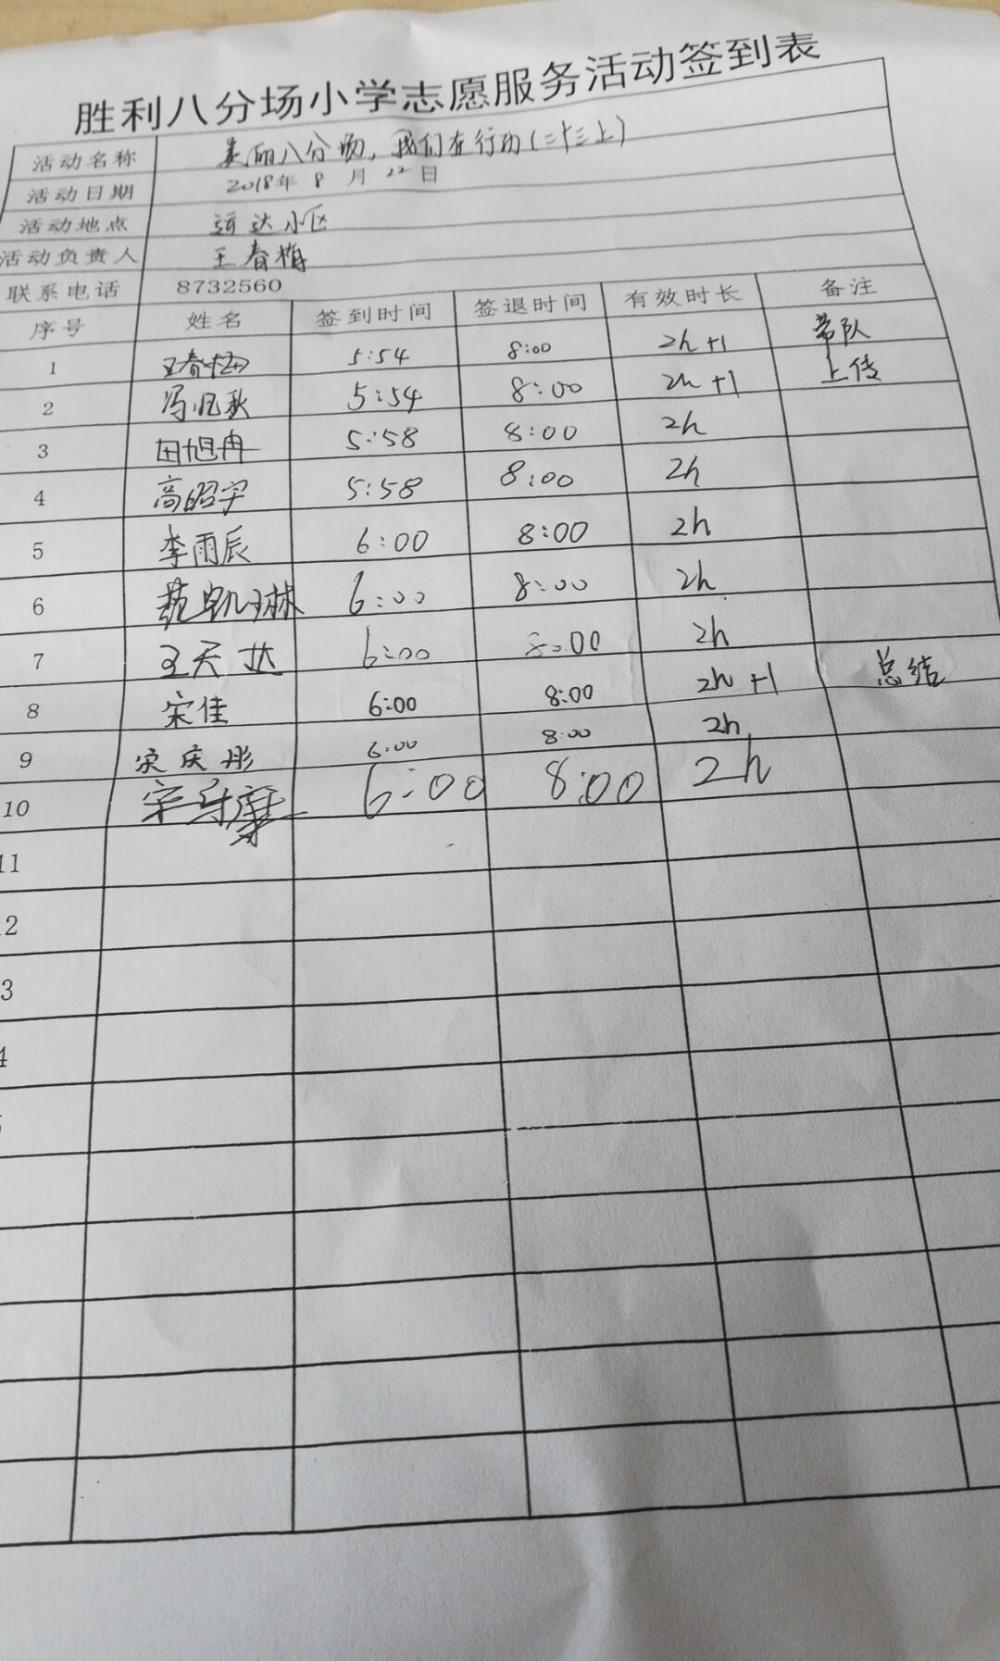 胜利八分场小学志愿服务活动签到表
活动名称 美丽八分场，我们在行动(二十三上)
活动日期 2018年 8 月 22 日
活动地点 运达小区
活动负责人 王春梅
联系电话 8732560
序号 姓名 签到时间 签退时间 有效时长 备注
1 王春梅 5:54 8:00 2h+1 带队
2 5:54 8:00 2h+1 上传
3 田旭冉 5:58 8:00 2h
4 高昭宇 5:58 8:00 2h
5 李雨辰 6:00 8:00 2h
6 范凯琳 6:00 8:00 2h
7 王天达 6:00 8:00 2h
8 宋佳 6:00 8:00 2h+1 总结
9 宋庆彤 6:00 8:00 2h
10 6:00 8:00 2h
11
2
3
4